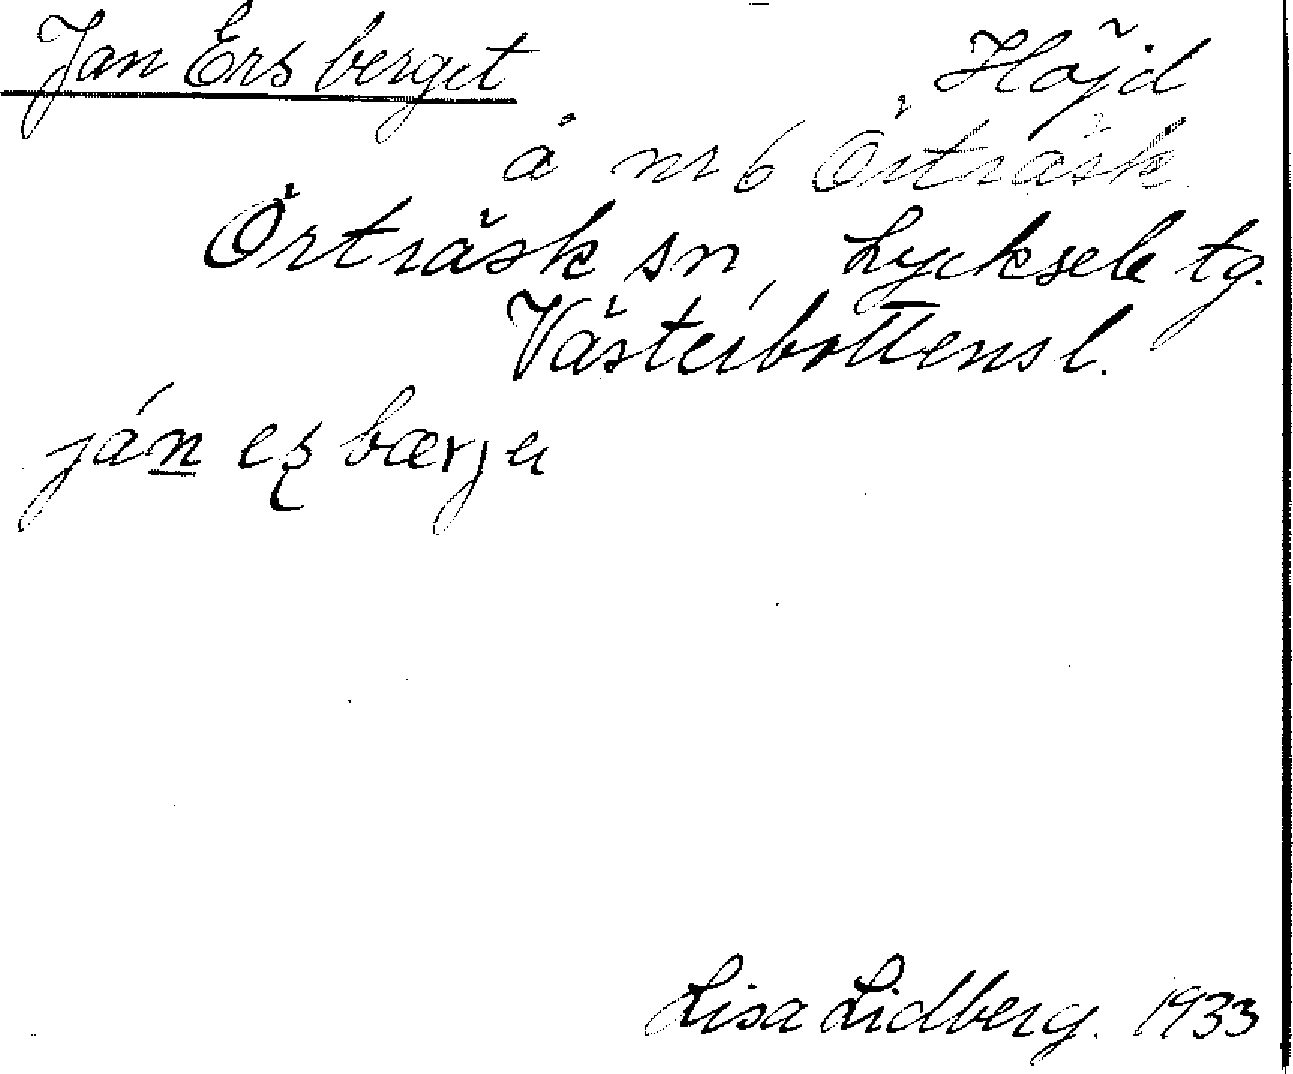 Jan Ers berget Höjd
å nr 6 Örträsk
Örträsk sn, Lycksele tg.
Västerbottens l.
ján eʂ bærje
Lisa Lidberg. 1933